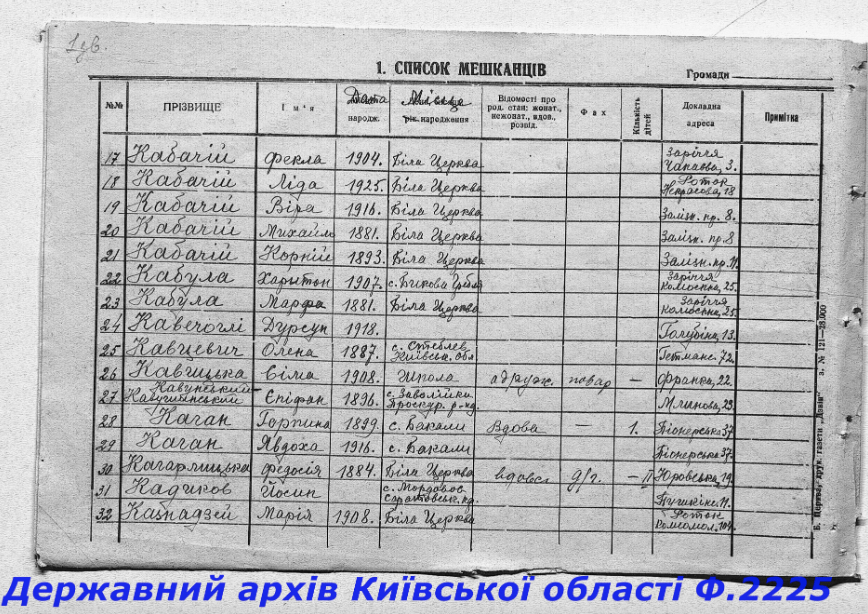 1. СПИСОК МЕШКАНЦІВ
Громади
№№ ПРІЗВИЩЕ Ім'я Дата народж. Місце народження Відомості про род. стан: жонат., нежонат., вдов., розвід. Фах Кількість дітей Докладна адреса Примітка
17 Кабачій Фекла 1904. Біла Церква Заріччя Чапаєва, 3.
18 Кабачій Ліда 1925. Біла Церква Роток Некрасова, 18
19 Кабачій Віра 1916. Біла Церква Залізн. пр. 8.
20 Кабачій Михайло 1881. Біла Церква Залізн. пр. 8
21 Кабачій Корній 1893. Біла Церква Залізн. пр. 11.
22 Кабула Харытон 1907. с. Бикова Гребля Заріччя 25.
23 Кабула Марфа 1881. Біла Церква Заріччя 25.
24 Кавечоглі Дурсун 1918. Голубіна, 13.
25 Кавцевич Олена 1887. с. Стеблев Київськ. обл. Гетманс. 72.
26 Кавицька Сіма 1908. Шпола одруж. повар — Франка, 22.
27 Кавунський Єпіфан 1896. с. Млинова, 29.
28 Каган Горпина 1899. с. Бакали Вдова — 1. Піонерська 37
29 Каган Явдоха 1916. с. Бакали Піонерська 37.
30 Кагарлицька Федосія 1884. Біла Церква вдова д/г. — II Юровська, 19
31 Кадиков Йосип с. Мордовов Саратовськ. Пушкіна, 11.
32 Казнадзей Марія 1908. Біла Церква Роток Комсомол. 104.
Б. Церква, друк. газети „Дзвін" з. № 121—28.000
Державний архів Київської області Ф.2225